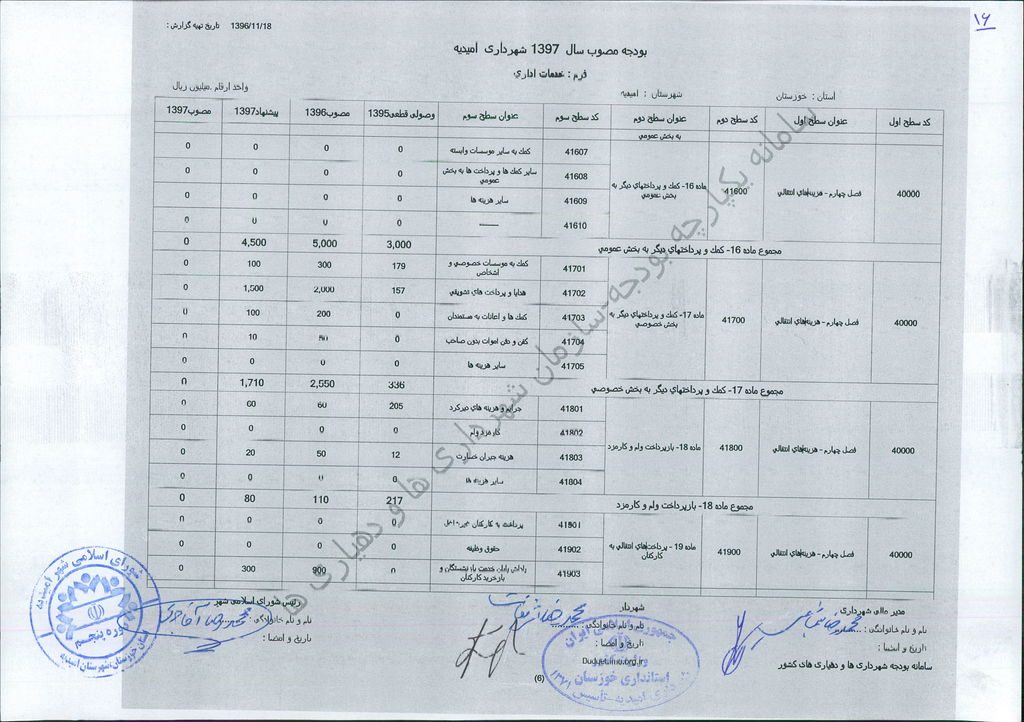 ۱۶
تاریخ تهیه گزارش : 1396/11/18
بودجه مصوب سال 1397 شهرداری امیدیه
فرم : خدمات اداری
واحد ارقام :میلیون ریال
استان : خوزستان شهرستان : امیدیه
کد سطح اول عنوان سطح اول کد سطح دوم عنوان سطح دوم کد سطح سوم عنوان سطح سوم وصولی قطعی1395 مصوب1396 پیشنهاد1397 مصوب1397
به بخش عمومی
40000 فصل چهارم - هزینه‌های انتقالی 41600 ماده 16- کمک و پرداختهای دیگر به بخش عمومی
41607 کمک به سایر موسسات وابسته 0 0 0 0
41608 سایر کمک ها و پرداخت ها به بخش عمومی 0 0 0 0
41609 سایر هزینه ها 0 0 0 0
41610 ------- 0 0 0 0
مجموع ماده 16- کمک و پرداختهای دیگر به بخش عمومی 3,000 5,000 4,500 0
40000 فصل چهارم - هزینه‌های انتقالی 41700 ماده 17- کمک و پرداختهای دیگر به بخش خصوصی
41701 کمک به موسسات خصوصی و اشخاص 179 300 100 0
41702 هدایا و پرداخت های تشویقی 157 2,000 1,500 0
41703 کمک ها و اعانات به مستمندان 0 200 100 0
41704 کفن و دفن اموات بدون صاحب 0 50 10 0
41705 سایر هزینه ها 0 0 0 0
مجموع ماده 17- کمک و پرداختهای دیگر به بخش خصوصی 336 2,550 1,710 0
40000 فصل چهارم - هزینه‌های انتقالی 41800 ماده 18- بازپرداخت وام و کارمزد
41801 جرایم و هزینه های دیرکرد 205 60 60 0
41802 کارمزد وام 0 0 0 0
41803 هزینه جبران خسارت 12 50 20 0
41804 سایر هزینه ها 0 0 0 0
مجموع ماده 18- بازپرداخت وام و کارمزد 217 110 80 0
40000 فصل چهارم - هزینه‌های انتقالی 41900 ماده 19 - پرداخت‌های انتقالی به کارکنان
41901 پرداخت به کارکنان غیرشاغل 0 0 0 0
41902 حقوق وظیفه 0 0 0 0
41903 پاداش پایان خدمت بازنشستگان و بازخرید کارکنان 0 900 300 0
مدیر مالی شهرداری شهردار رئیس شورای اسلامی شهر
نام و نام خانوادگی : نام و نام خانوادگی : نام و نام خانوادگی :
تاریخ و امضا : تاریخ و امضا : تاریخ و امضا :
سامانه بودجه شهرداری ها و دهیاری های کشور
(6)
سامانه یکپارچه بودجه-سازمان شهرداری ها و دهیاری ها
شورای اسلامی شهر امیدیه
دوره پنجم
استان خوزستان-شهرستان امیدیه
استانداری خوزستان